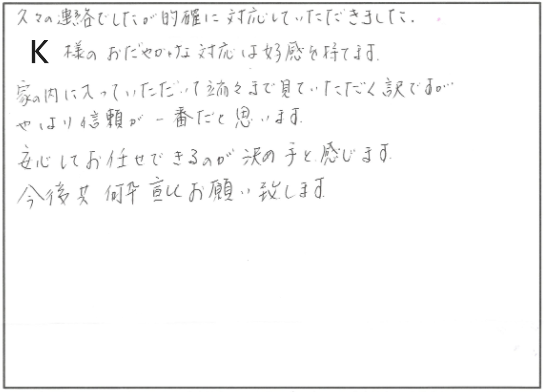 久々の連絡でしたが的確に対応していただきました.
K 様のおだやかな対応は好感を持てます.
家の内に入っていただいて端々まで見ていただく訳ですが
やはり信頼が一番だと思います.
安心してお任せできるのが決め手と感じます.
今後共 何卒宜しくお願い致します.